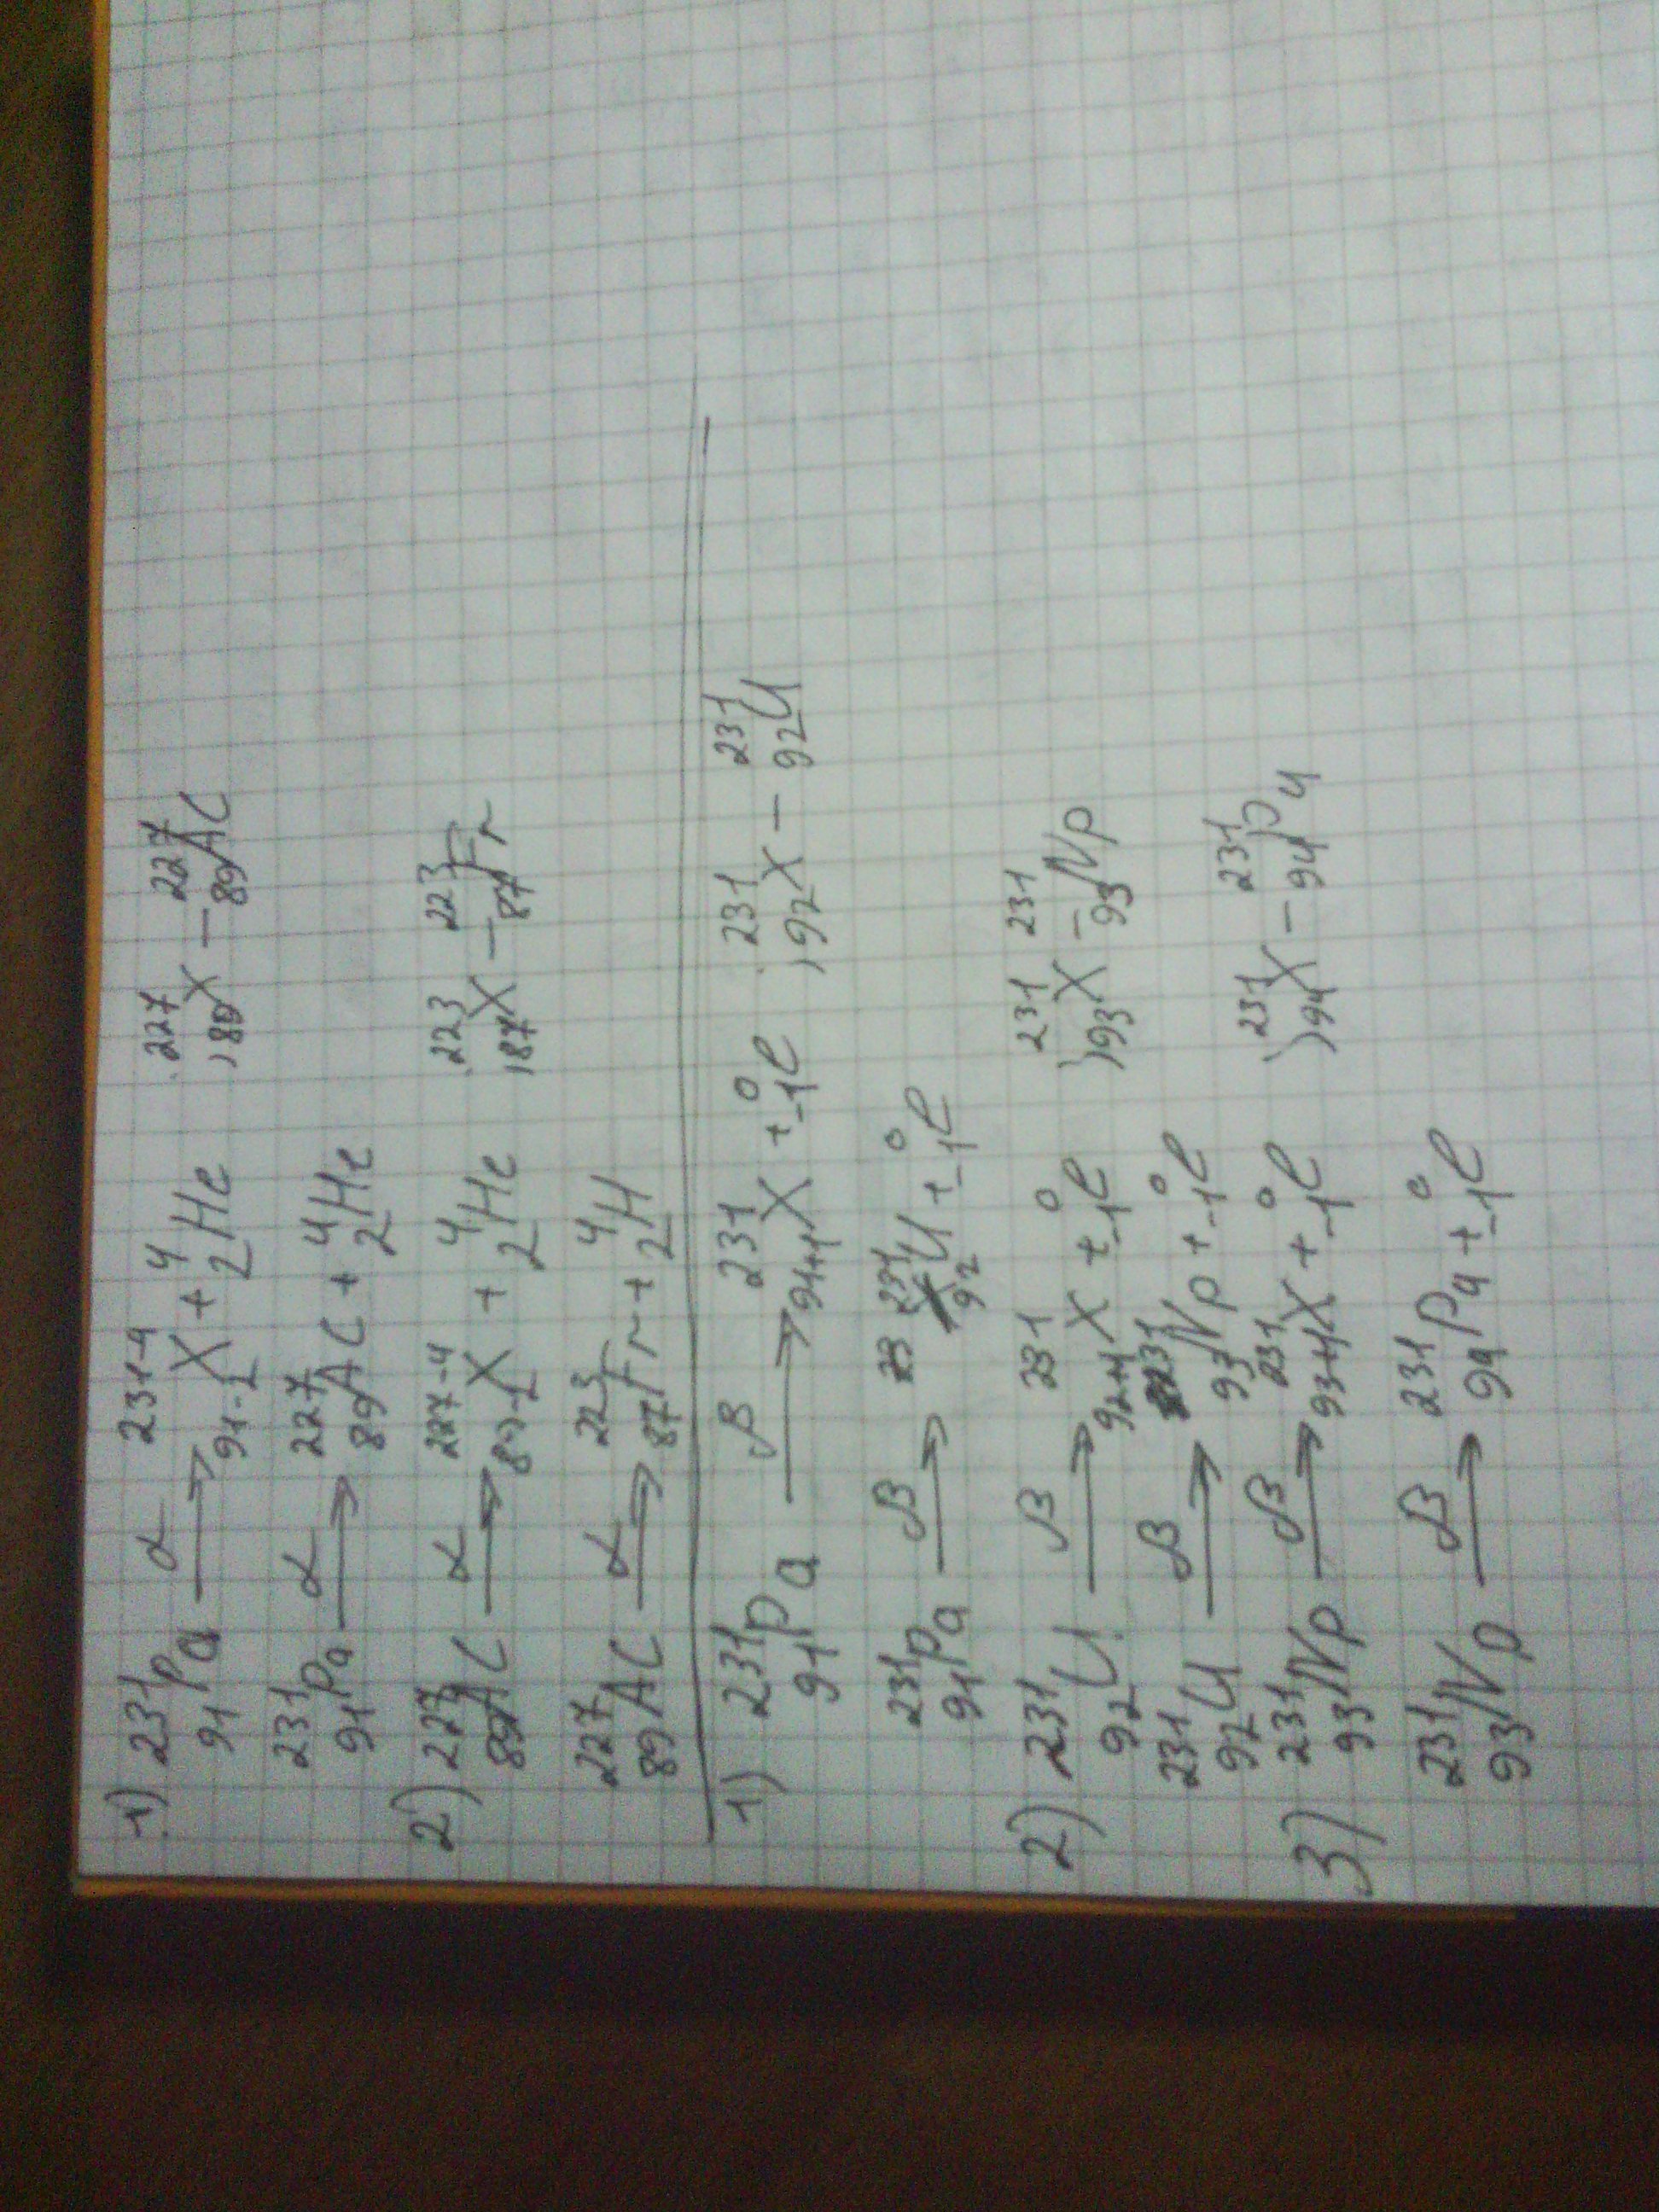 1) ²³¹₉₁Pa —α→ ²³¹⁻⁴₉₁₋₂X + ⁴₂He , ²²⁷₈₉X – ²²⁷₈₉AC
²³¹₉₁Pa —α→ ²²⁷₈₉AC + ⁴₂He
2) ²²⁷₈₉AC —α→ ²²⁷⁻⁴₈₉₋₂X + ⁴₂He , ²²³₈₇X – ²²³₈₇Fr
²²⁷₈₉AC —α→ ²²³₈₇Fr + ⁴₂H
1) ²³¹₉₁Pa —β→ ²³¹₉₁₊₁X + ⁰₋₁e , ²³¹₉₂X – ²³¹₉₂U
²³¹₉₁Pa —β→ ²³¹₉₂U + ⁰₋₁e
2) ²³¹₉₂U —β→ ²³¹₉₂₊₁X + ⁰₋₁e , ²³¹₉₃X – ²³¹₉₃Np
²³¹₉₂U —β→ ²³¹₉₃Np + ⁰₋₁e
3) ²³¹₉₃Np —β→ ²³¹₉₃₊₁X + ⁰₋₁e , ²³¹₉₄X – ²³¹₉₄Pu
²³¹₉₃Np —β→ ²³¹₉₄Pu + ⁰₋₁e